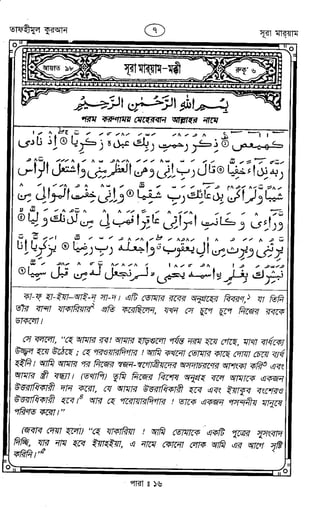 তাফহীমুল কুরআন
৭
সূরা মার্‌য়াম
আয়াত ৯৮
সূরা মার্‌য়াম-মক্কী
রুকূ' ৬
بِسْمِ اللهِ الرَّحْمٰنِ الرَّحِيْمِ
পরম করুণাময় মেহেরবান আল্লাহর নামে
كهيعص ۞ ذكر رحمت ربك عبده زكريا ۞ اذ نادى
ربه نداء خفيا ۞ قال رب انى وهن العظم منى واشتعل الراس
شيبا ولم اكن بدعائك رب شقيا ۞ وانى خفت الموالى من
وراءى وكانت امراتى عاقرا فهب لى من لدنك وليا ۞
يرثنى ويرث من ال يعقوب واجعله رب رضيا ۞ يزكريا انا
نبشرك بغلم اسمه يحيى لم نجعل له من قبل سميا ۞
কা-ফ্‌ হা-ইয়া-আই-ন্‌ সা-দ। এটি তোমার রবের অনুগ্রহের বিবরণ, যা তিনি
তাঁর বান্দা যাকারিয়ার প্রতি করেছিলেন, যখন সে চুপে চুপে নিজের রবকে
ডাকলো।
সে বললো, "হে আমার রব! আমার হাড়গুলো পর্যন্ত নরম হয়ে গেছে, মাথা বার্ধক্যে
উজ্জ্বল হয়ে উঠেছে; হে পরওয়ারদিগার! আমি কখনো তোমার কাছে দোয়া চেয়ে ব্যর্থ
হইনি। আমি আমার পর নিজের স্বজন-স্বগোত্রীয়দের অসদাচরণের আশংকা করি এবং
আমার স্ত্রী বন্ধ্যা। (তথাপি) তুমি নিজের বিশেষ অনুগ্রহ বলে আমাকে একজন
উত্তরাধিকারী দান করো, যে আমার উত্তরাধিকারী হবে এবং ইয়াকুব বংশেরও
উত্তরাধিকারী হবে। আর হে পরোয়ারদিগার! তাকে একজন পসন্দনীয় মানুষে
পরিণত করো।"
(জবাব দেয়া হলো) "হে যাকারিয়া! আমি তোমাকে একটি পুত্রের সুসংবাদ
দিচ্ছি, যার নাম হবে ইয়াহইয়া, এ নামে কোনো লোক আমি এর আগে সৃষ্টি
করিনি।"
পারা : ১৬